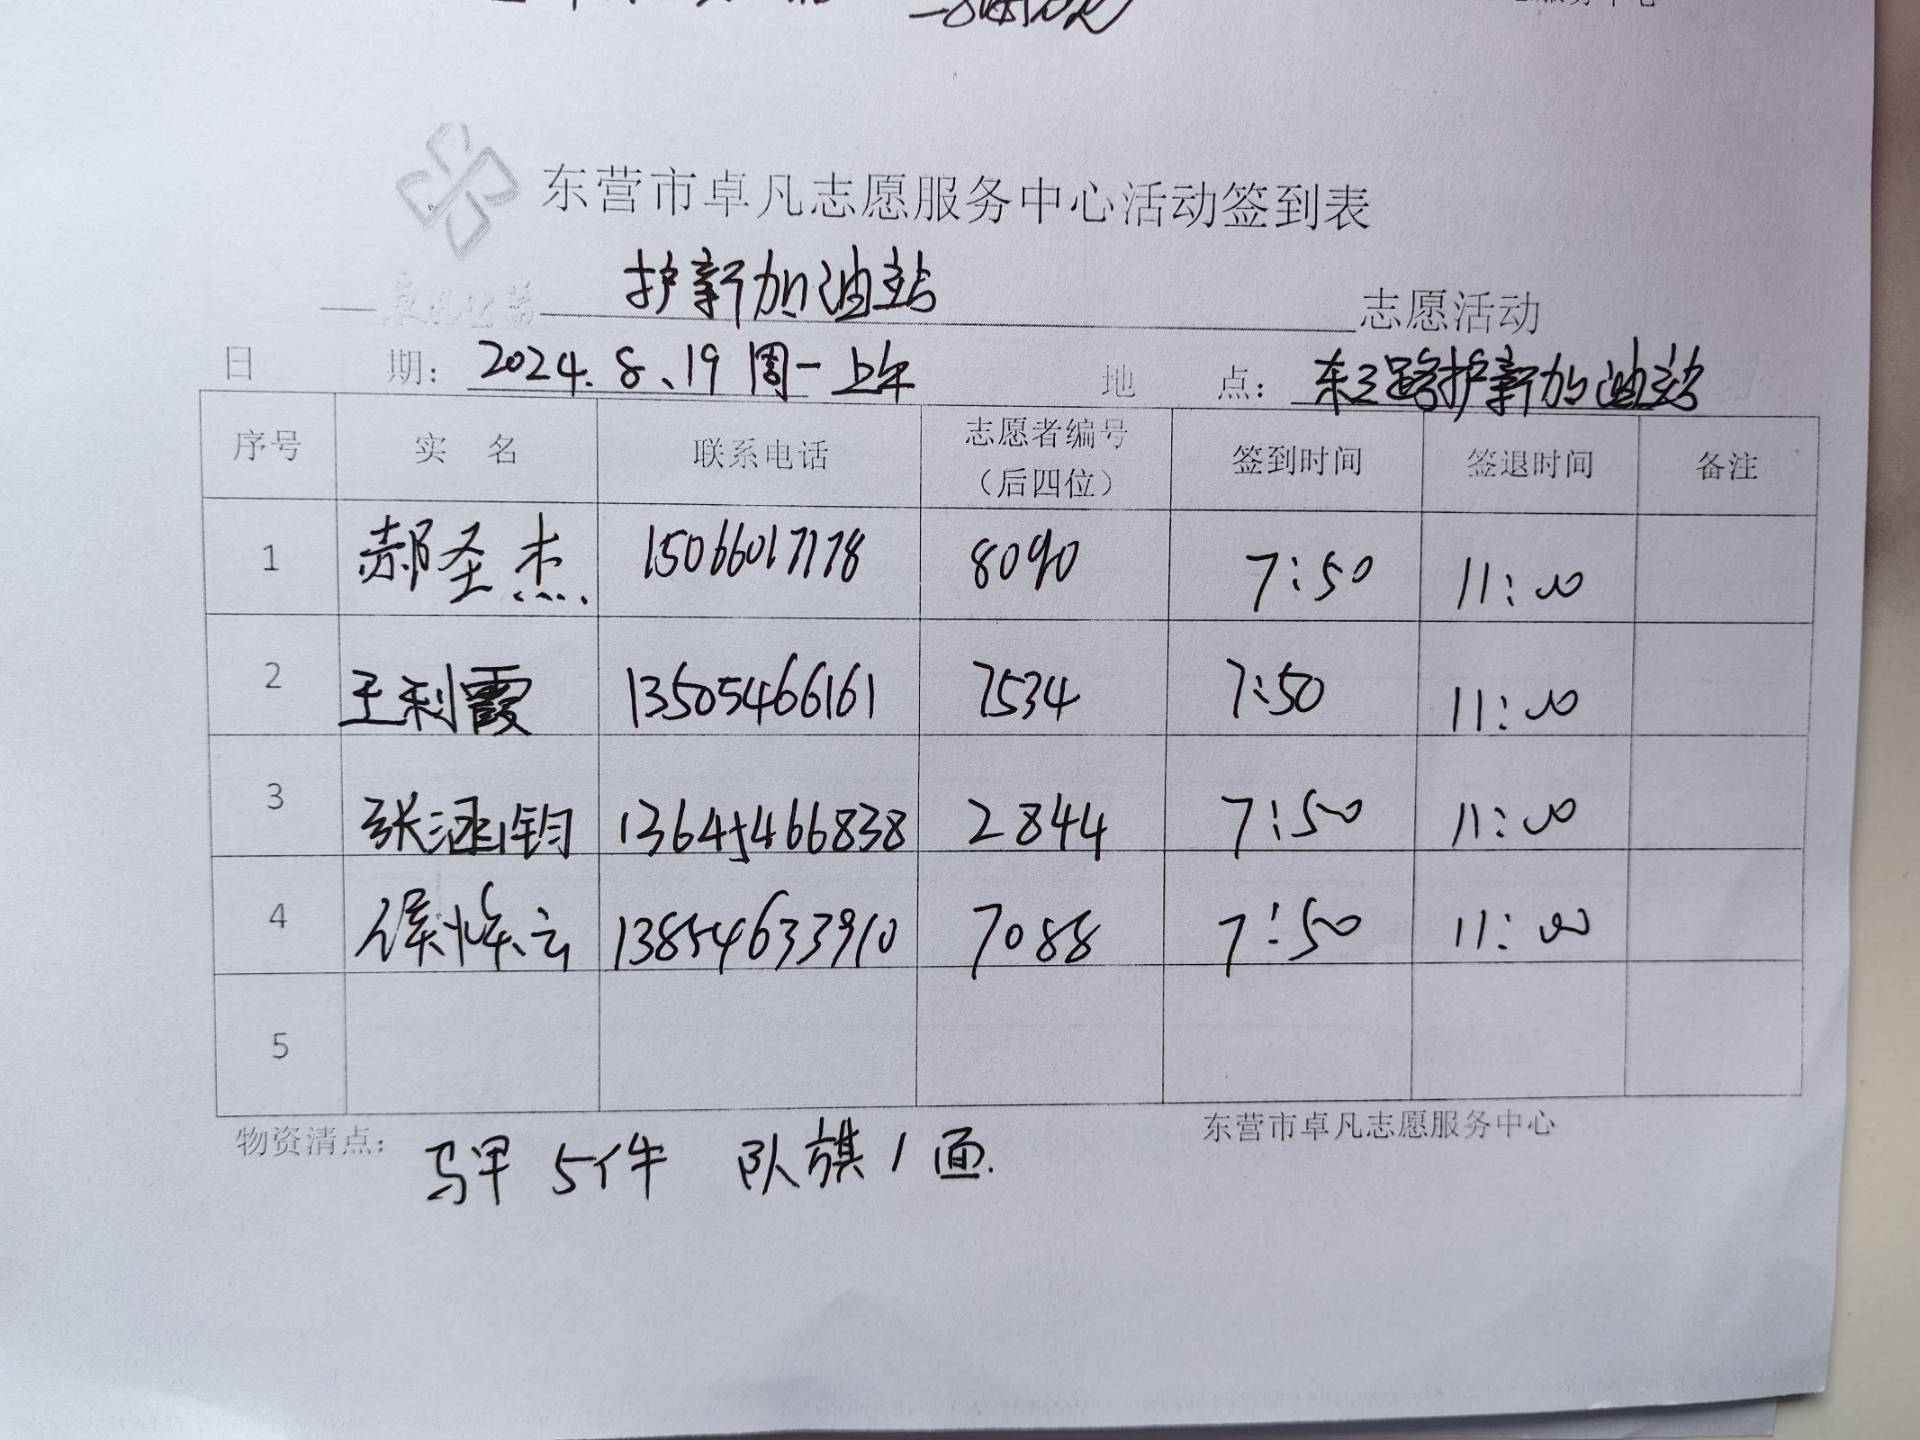 东营市卓凡志愿服务中心活动签到表
护新加油站 志愿活动
日 期: 2024.8、19 周一上午 地 点: 东三路护新加油站
序号 实 名 联系电话 志愿者编号(后四位) 签到时间 签退时间 备注
1 郝圣杰 15066017178 8090 7:50 11:00
2 王利霞 13505466161 7534 7:50 11:00
3 张涵钧 13645466838 2844 7:50 11:00
4 侯云 13854633910 7088 7:50 11:00
5
物资清点: 马甲 5件 队旗 1 面. 东营市卓凡志愿服务中心